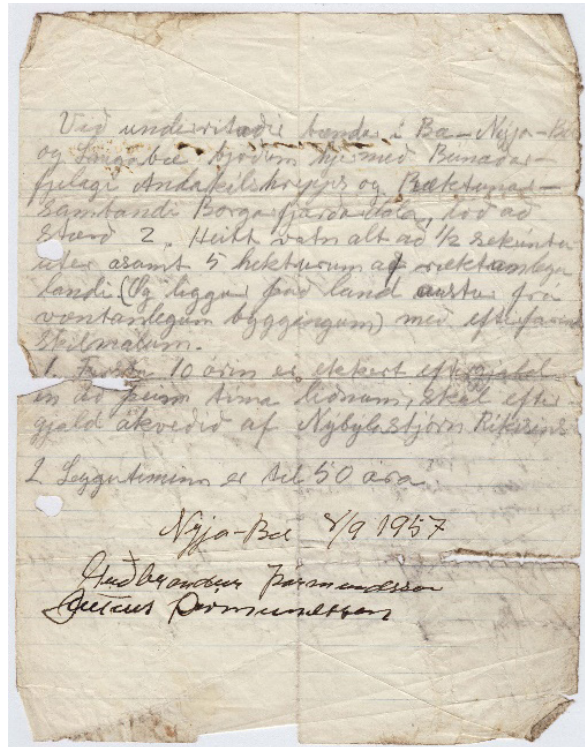 Við undirritaðir bændur í Bæ - Nýja-Bæ
og bjóðum hjer með Búnaðar-
fjelagi Andakílshrepps og Ræktunar-
Sambandi Borgarfjarðardala, lóð að
stærð 2. Heitt vatn alt að 1/2 sekúntu
líter ásamt 5 hekturum af ræktanlegu
landi (Og liggur það land austur frá
væntanlegum byggingum) með eftirfarandi
Skilmálum.
1. Fyrstu 10 árin er ekkert eftirgjald
en að þeim tíma liðnum, skal eftir-
gjald ákveðið af Nýbýlastjórn Ríkisins
2 Leigutíminn er til 50 ára
Nýja-Bæ 8/9 1957
Guðbrandur Þórmundsson
Þórmundsson